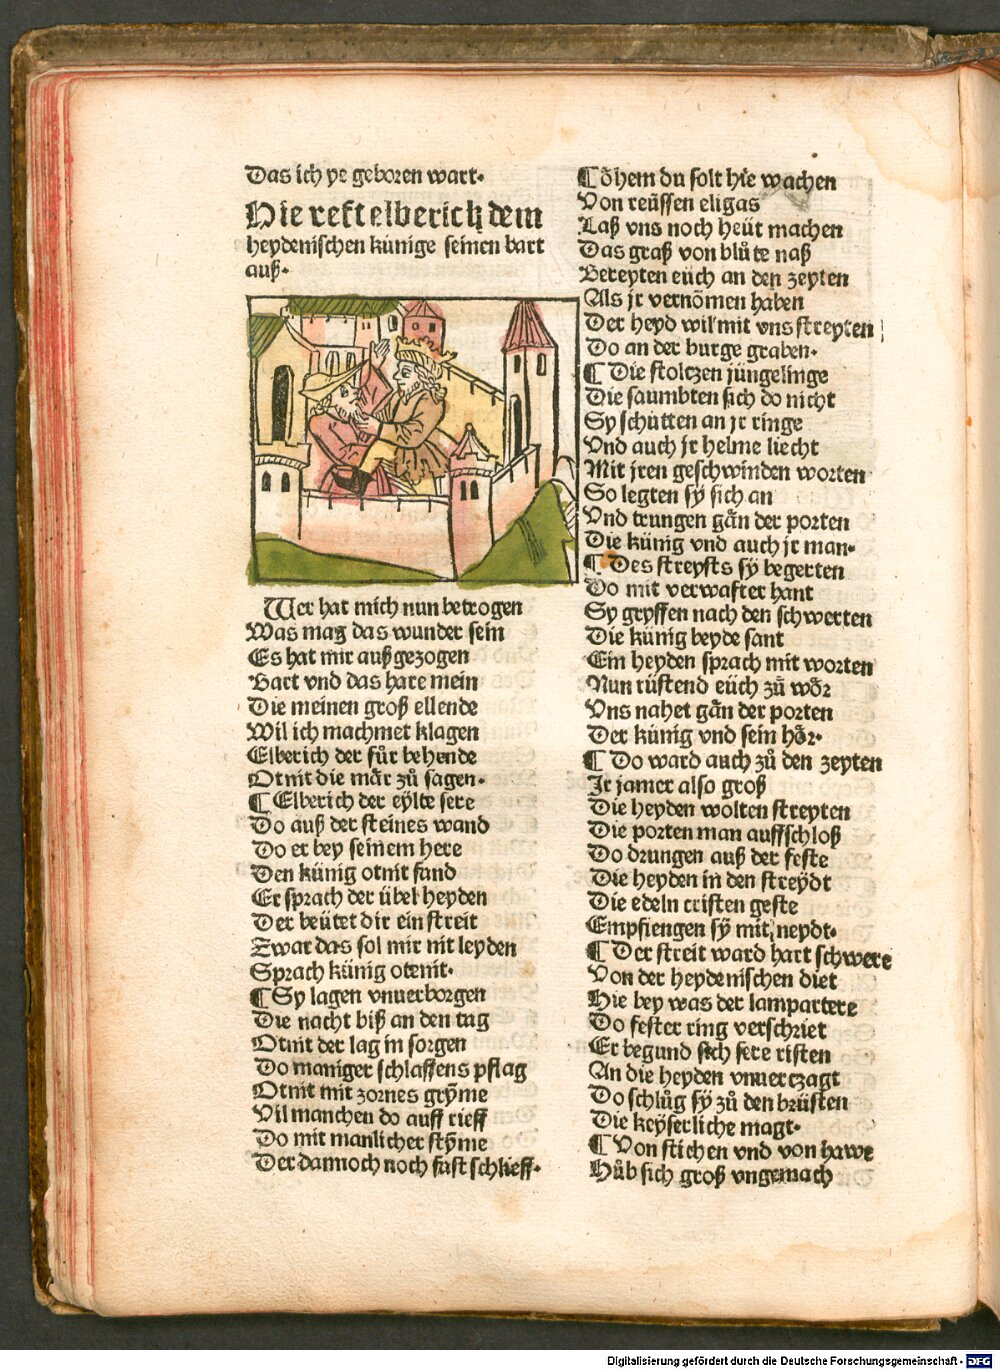 Das ich ye geboren wart.
Hie reft elberich dem
heydenischen künige seinen bart
auß.
Wer hat mich nun betrogen
Was mag das wunder sein
Es hat mir außgezogen
Bart vnd das hare mein
Die meinen groß ellende
Wil ich machmet klagen
Elberich der fůr behende
Otnit die mär zů sagen.
¶ Elberich der eylte sere
Do auß der steines wand
Do er bey seinem here
Den künig otnit fand
Er sprach der übel heyden
Der beütet dir ein streit
Zwar das sol mir nit leyden
Sprach künig otenit.
¶ Sy lagen vnuerborgen
Die nacht biß an den tag
Otnit der lag in sorgen
Do maniger schlaffens pflag
Otnit mit zornes grym̃e
Vil manchen do auff rieff
Do mit manlicher stym̃e
Der dannoch noch fast schlieff.
¶ Ohem du solt hie wachen
Von reüssen eligas
Laß vns noch heüt machen
Das graß von blůte naß
Bereyten eüch an den zeyten
Als jr vernōmen haben
Der heyd wil mit vns streyten
Do an der burge graben.
¶ Die stoltzen jüngelinge
Die saumbten sich do nicht
Sy schutten an jr ringe
Vnd auch jr helme liecht
Mit jren geschwinden worten
So legten sÿ sich an
Vnd trungen gän der porten
Die künig vnd auch jr man.
¶ Des streytts sÿ begerten
Do mit verwafter hant
Sy gryffen nach den schwerten
Die künig beyde sant
Ein heyden sprach mit worten
Nun rüstend eüch zů wör
Vns nahet gän der porten
Der künig vnd sein hör.
¶ Do ward auch zů den zeyten
Jr jamer also groß
Die heyden wolten streyten
Die porten man auffschloß
Do drungen auß der feste
Die heyden in den streydt
Die edeln cristen geste
Empfiengen sÿ mit neydt.
¶ Der streit ward hart schwere
Von der heydenischen diet
Hie bey was der lampartere
Do fester ring verschriet
Er begund sich sere risten
An die heyden vnuerczagt
Do schlůg sÿ zů den brüsten
Die keÿserliche magt.
¶ Von stichen vnd von hawe
Hůb sich groß vngemach
Digitalisierung gefördert durch die Deutsche Forschungsgemeinschaft - DFG